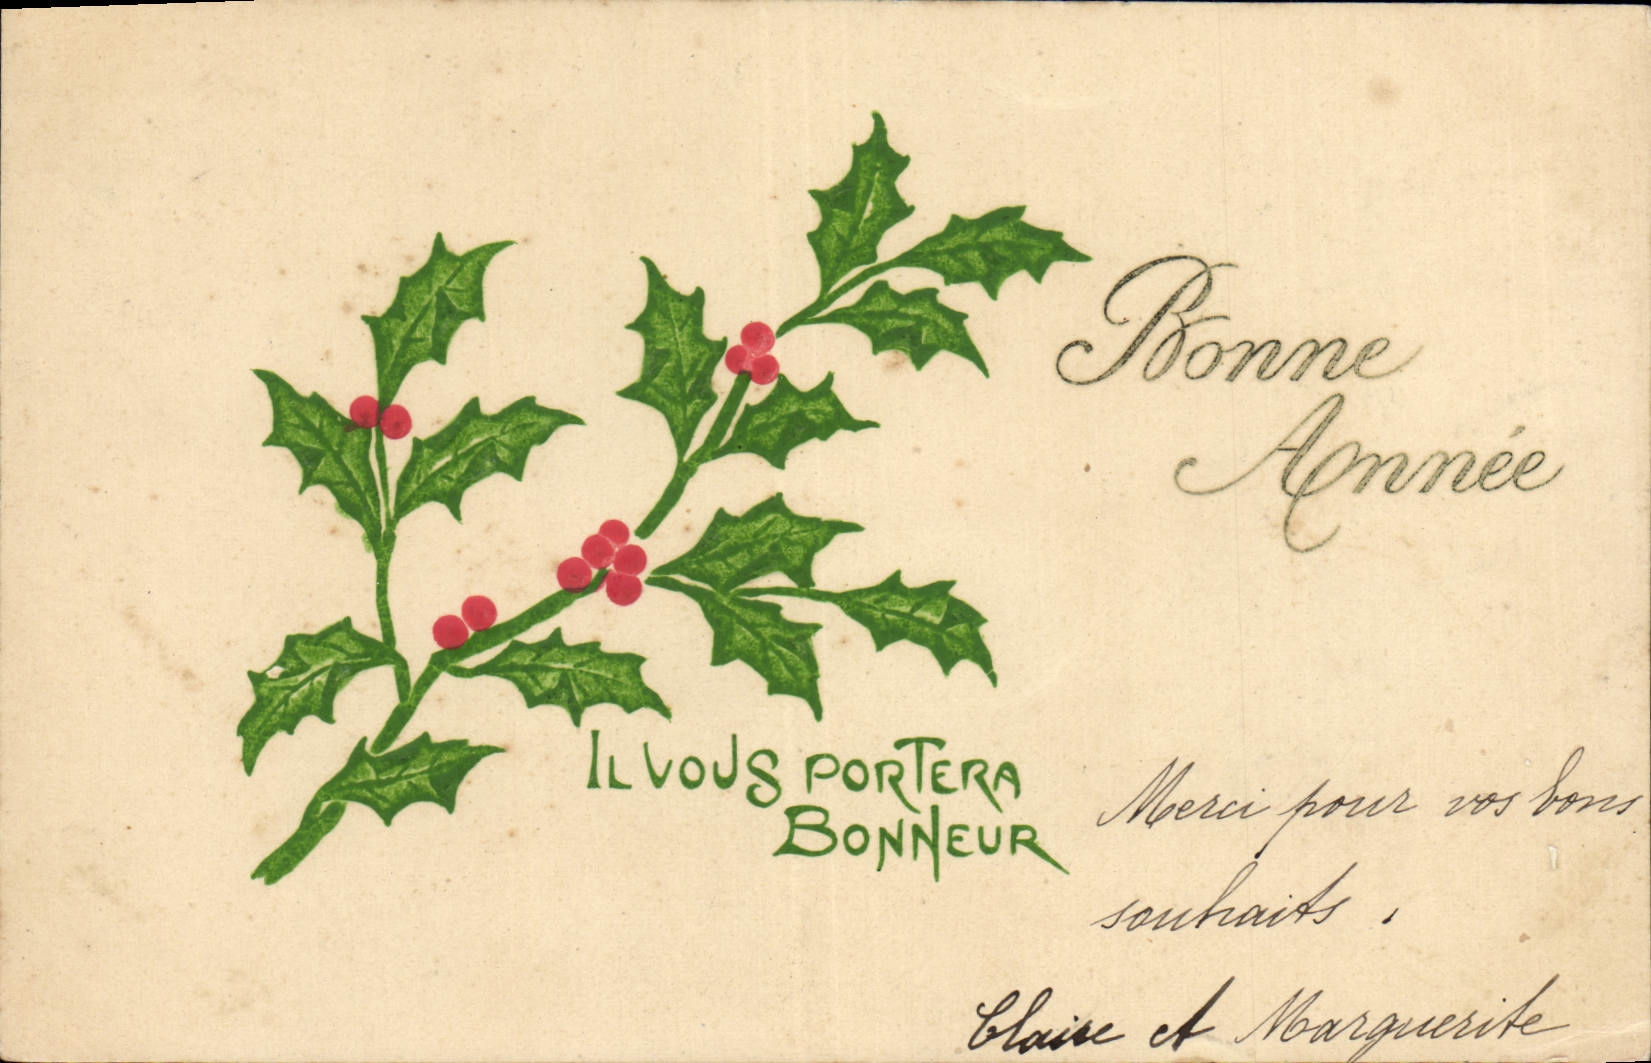 Bonne
Année
IL VOUS PORTERA
BONHEUR
Merci pour vos bons
souhaits.
Claire et Marguerite